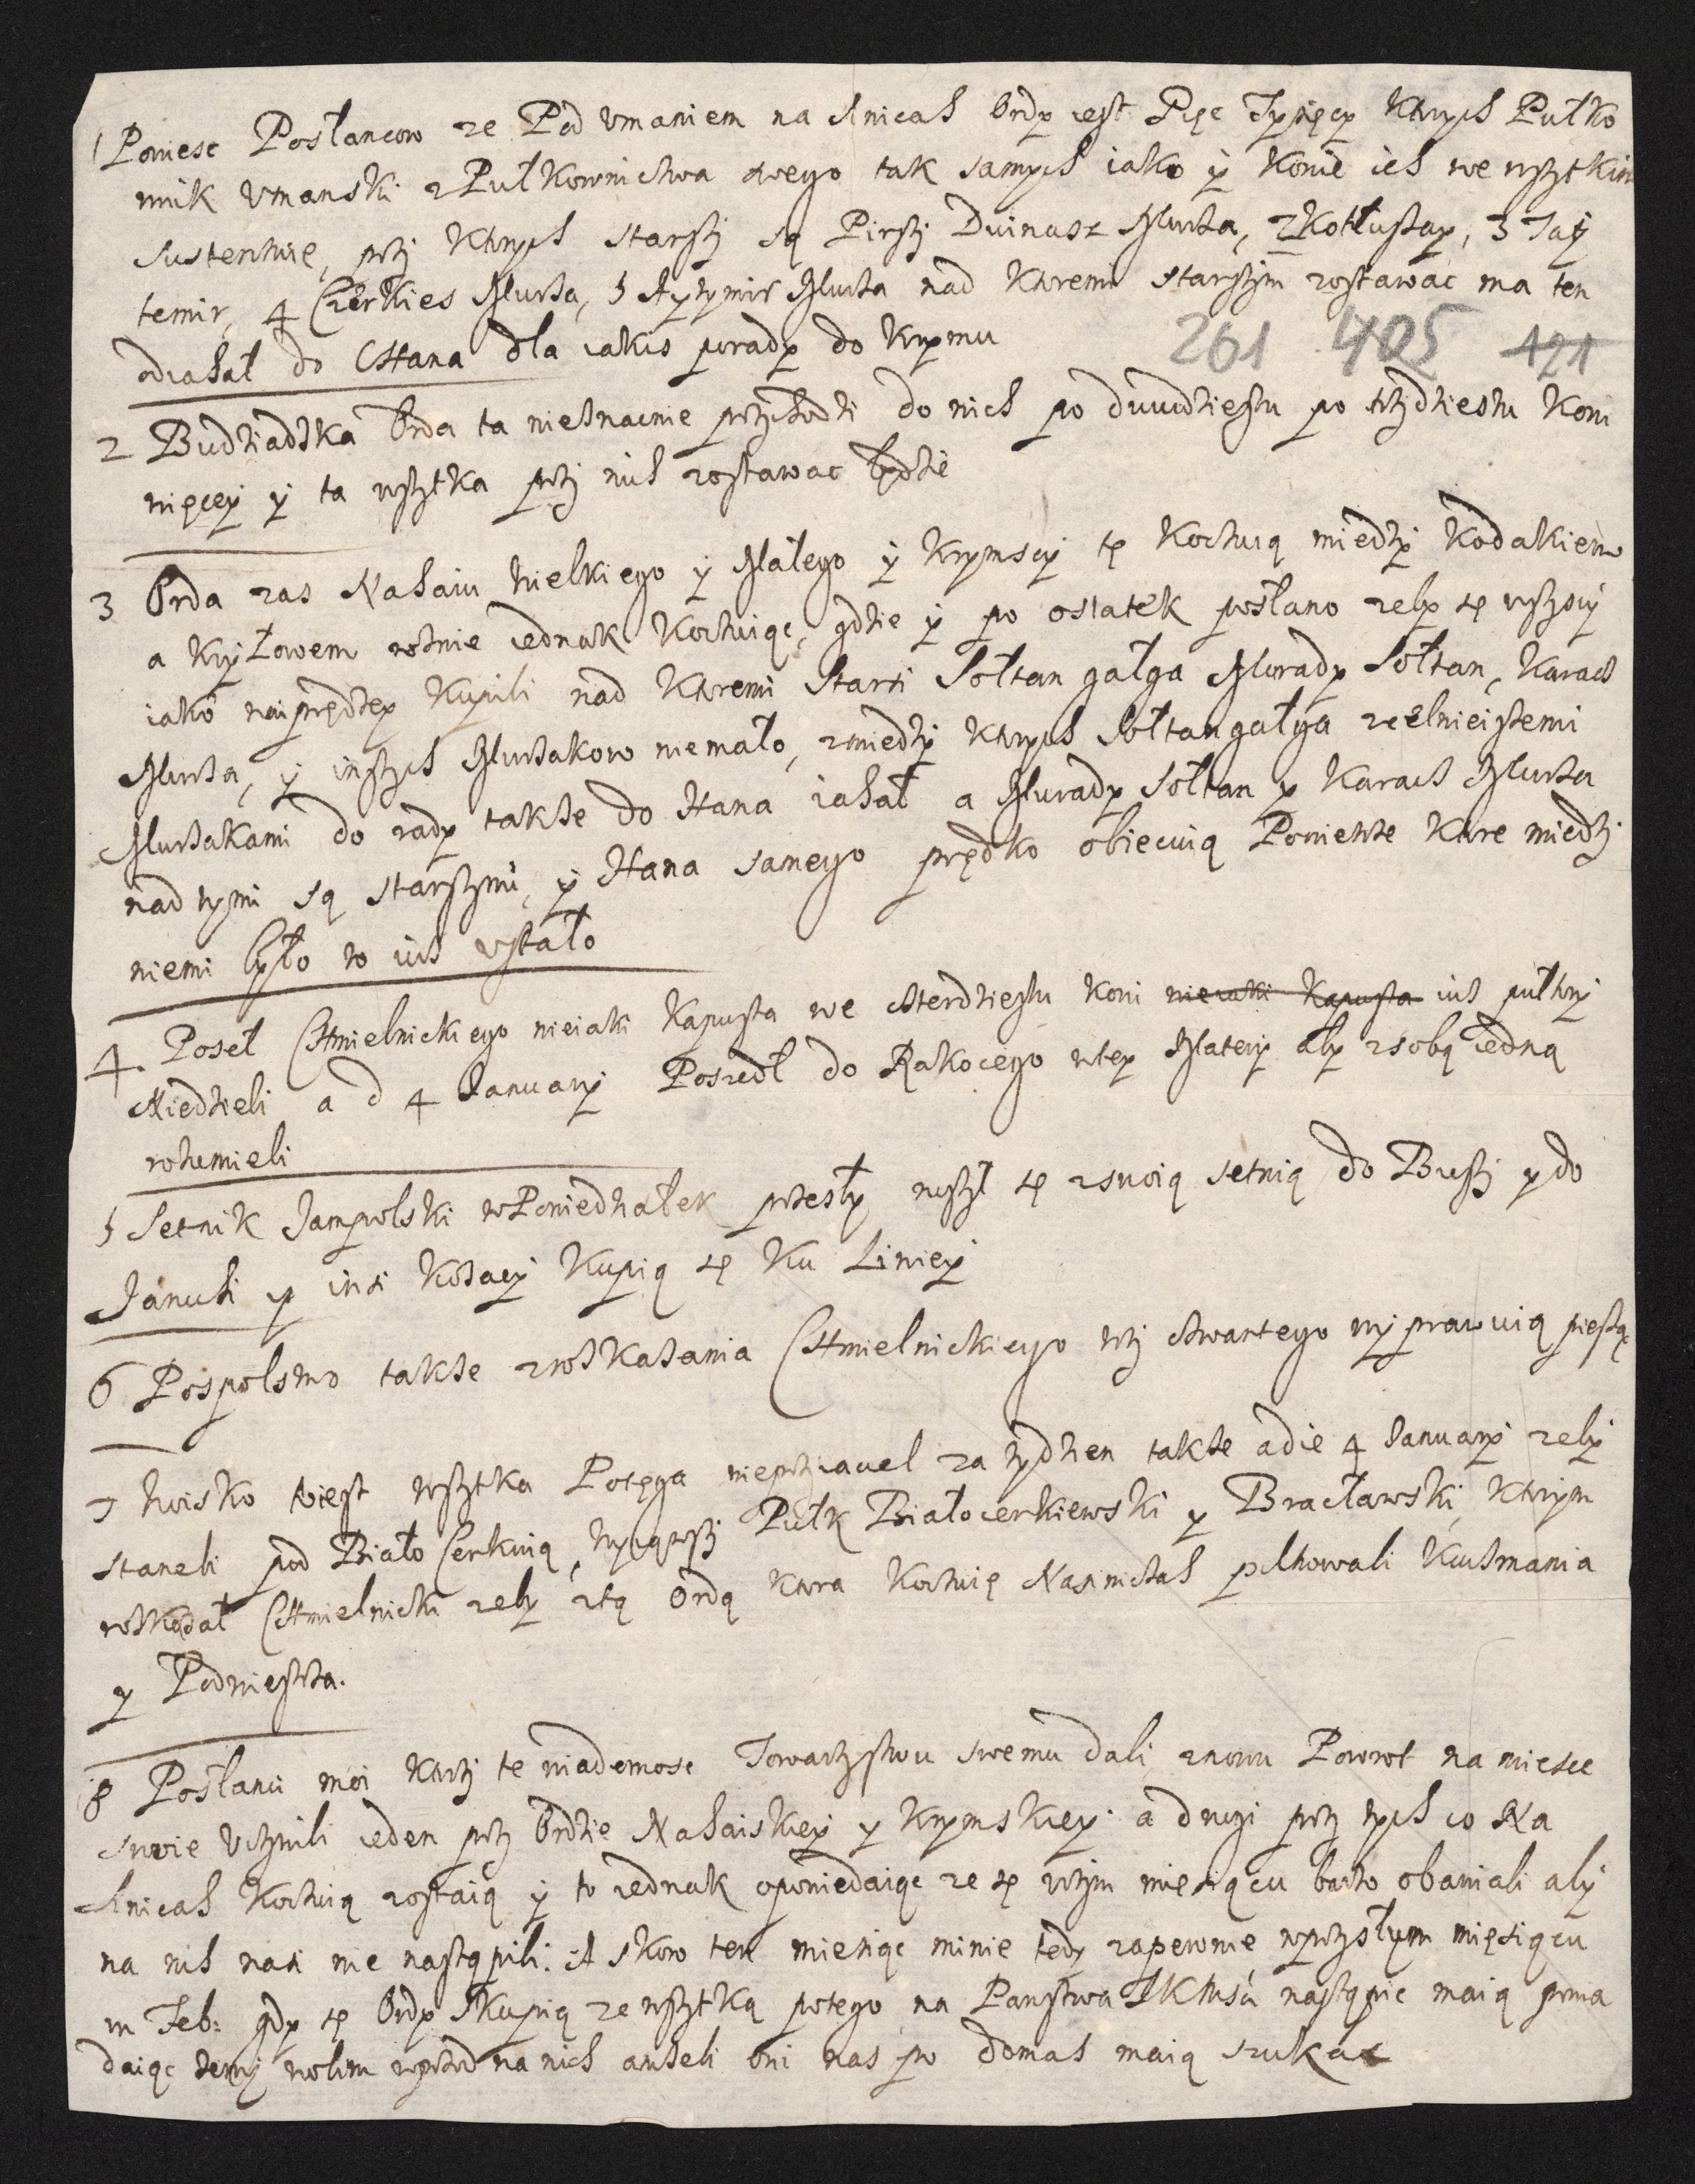 1 Powiesc Posłancow ze Pod Vmaniem na Sinicah Ordy iest Pięc Tysięcy Ktorych Pułko
wnik Vmanski z Pułkownictwa swego tak samych iako y Konie ich we wszytkim
sustentuie, przy Ktorych starszy są Pirszy Duinasz Murza, 2 Kotłuszay, 3 Tay
temir, 4 Czerkies Murza, 5 Aytymir Murza nad Ktoremi starszym zostawac ma ten
odiahał do CHana dla iakis porady do Krymu
261 405 421
2 Budziadzka Orda ta nieznacnie przychodzi do nich po dwudziestu po trzydziestu Koni
więcey y ta wszytka przy nih zostawac będzie
3 Orda zas Nahaiu wielkiego y Małego y Krymscy sę Koczuią miedzy Kodakiem
a Kryłowem roznie iednak Koczuiąc, gdzie y po ostatek posłano zeby sę wszyscy
iako naiprędzey Kupili nad Ktoremi Starsi Sołtan gałga Murady Sołtan, Karach
Murza, y inszych Murzakow niemało, zmiedzy Ktorych Sołtangałga zcelnieiszemi
Murzakami do rady takze do Hana iahał a Murady Sołtan y Karach Murza
nad tymi są starszymi, y Hana samego prędko obiecuią Powietrze Ktore miedzy
niemi było to iuz vstało
4. Poseł CHmielnickiego nieiaki Kapusta we czterdziestu koni nieiaki Kapusta iuz pułtory
Niedzieli a d 4 Januarÿ Poszedł do Rakocego wtey Materÿ aby zsobą iedną
rozumieli
5 Setnik Jampolski w Poniedziałek przeszły ruszył sę zswoią setnią do Buszy y do
Januszi y insi Kozacy Kupią sę Ku Liniey
6 Pospolstwo takze zroskazania CHmielnickiego trzy czwartego wyprawuią pieszą
7 Woisko wiest wszytka Potęga nieprzyiaciel za tydzien takze a die 4 Januarÿ zeby
staneli pod Biało Cerkwią, Wyiąwszy Pułk Białocerkiewski y Bracławski, Ktorym
roskazał CHmielnicki zeby ztą Ordą Ktora Koczuię Nasinichah pilnowali Kuszmania
y Podniestrza.
8 Posłanci moi Ktorzy te wiadomosc Towarzystwu swemu dali znowu Powrot na miesce
swoie Vczynili ieden przy Ordzie Nahaiskiey y Krymskiey a drugi przy tych co Na
Sinicah Koczuią zostaią y to iednak opowiedaiąc ze sę wtym miesiącu barzo obawiali aby
na nih nasi nie nastąpili: A skoro ten miesiąc minie tedy zapewnie wprzyszłym miesiącu
in Feb: gdy sę Ordy skupią ze wszytką potęgo na Panstwa JKMsci nastąpic maią prma
daiąc wolim wprzod na nich anizeli oni nas po domah maią szukac